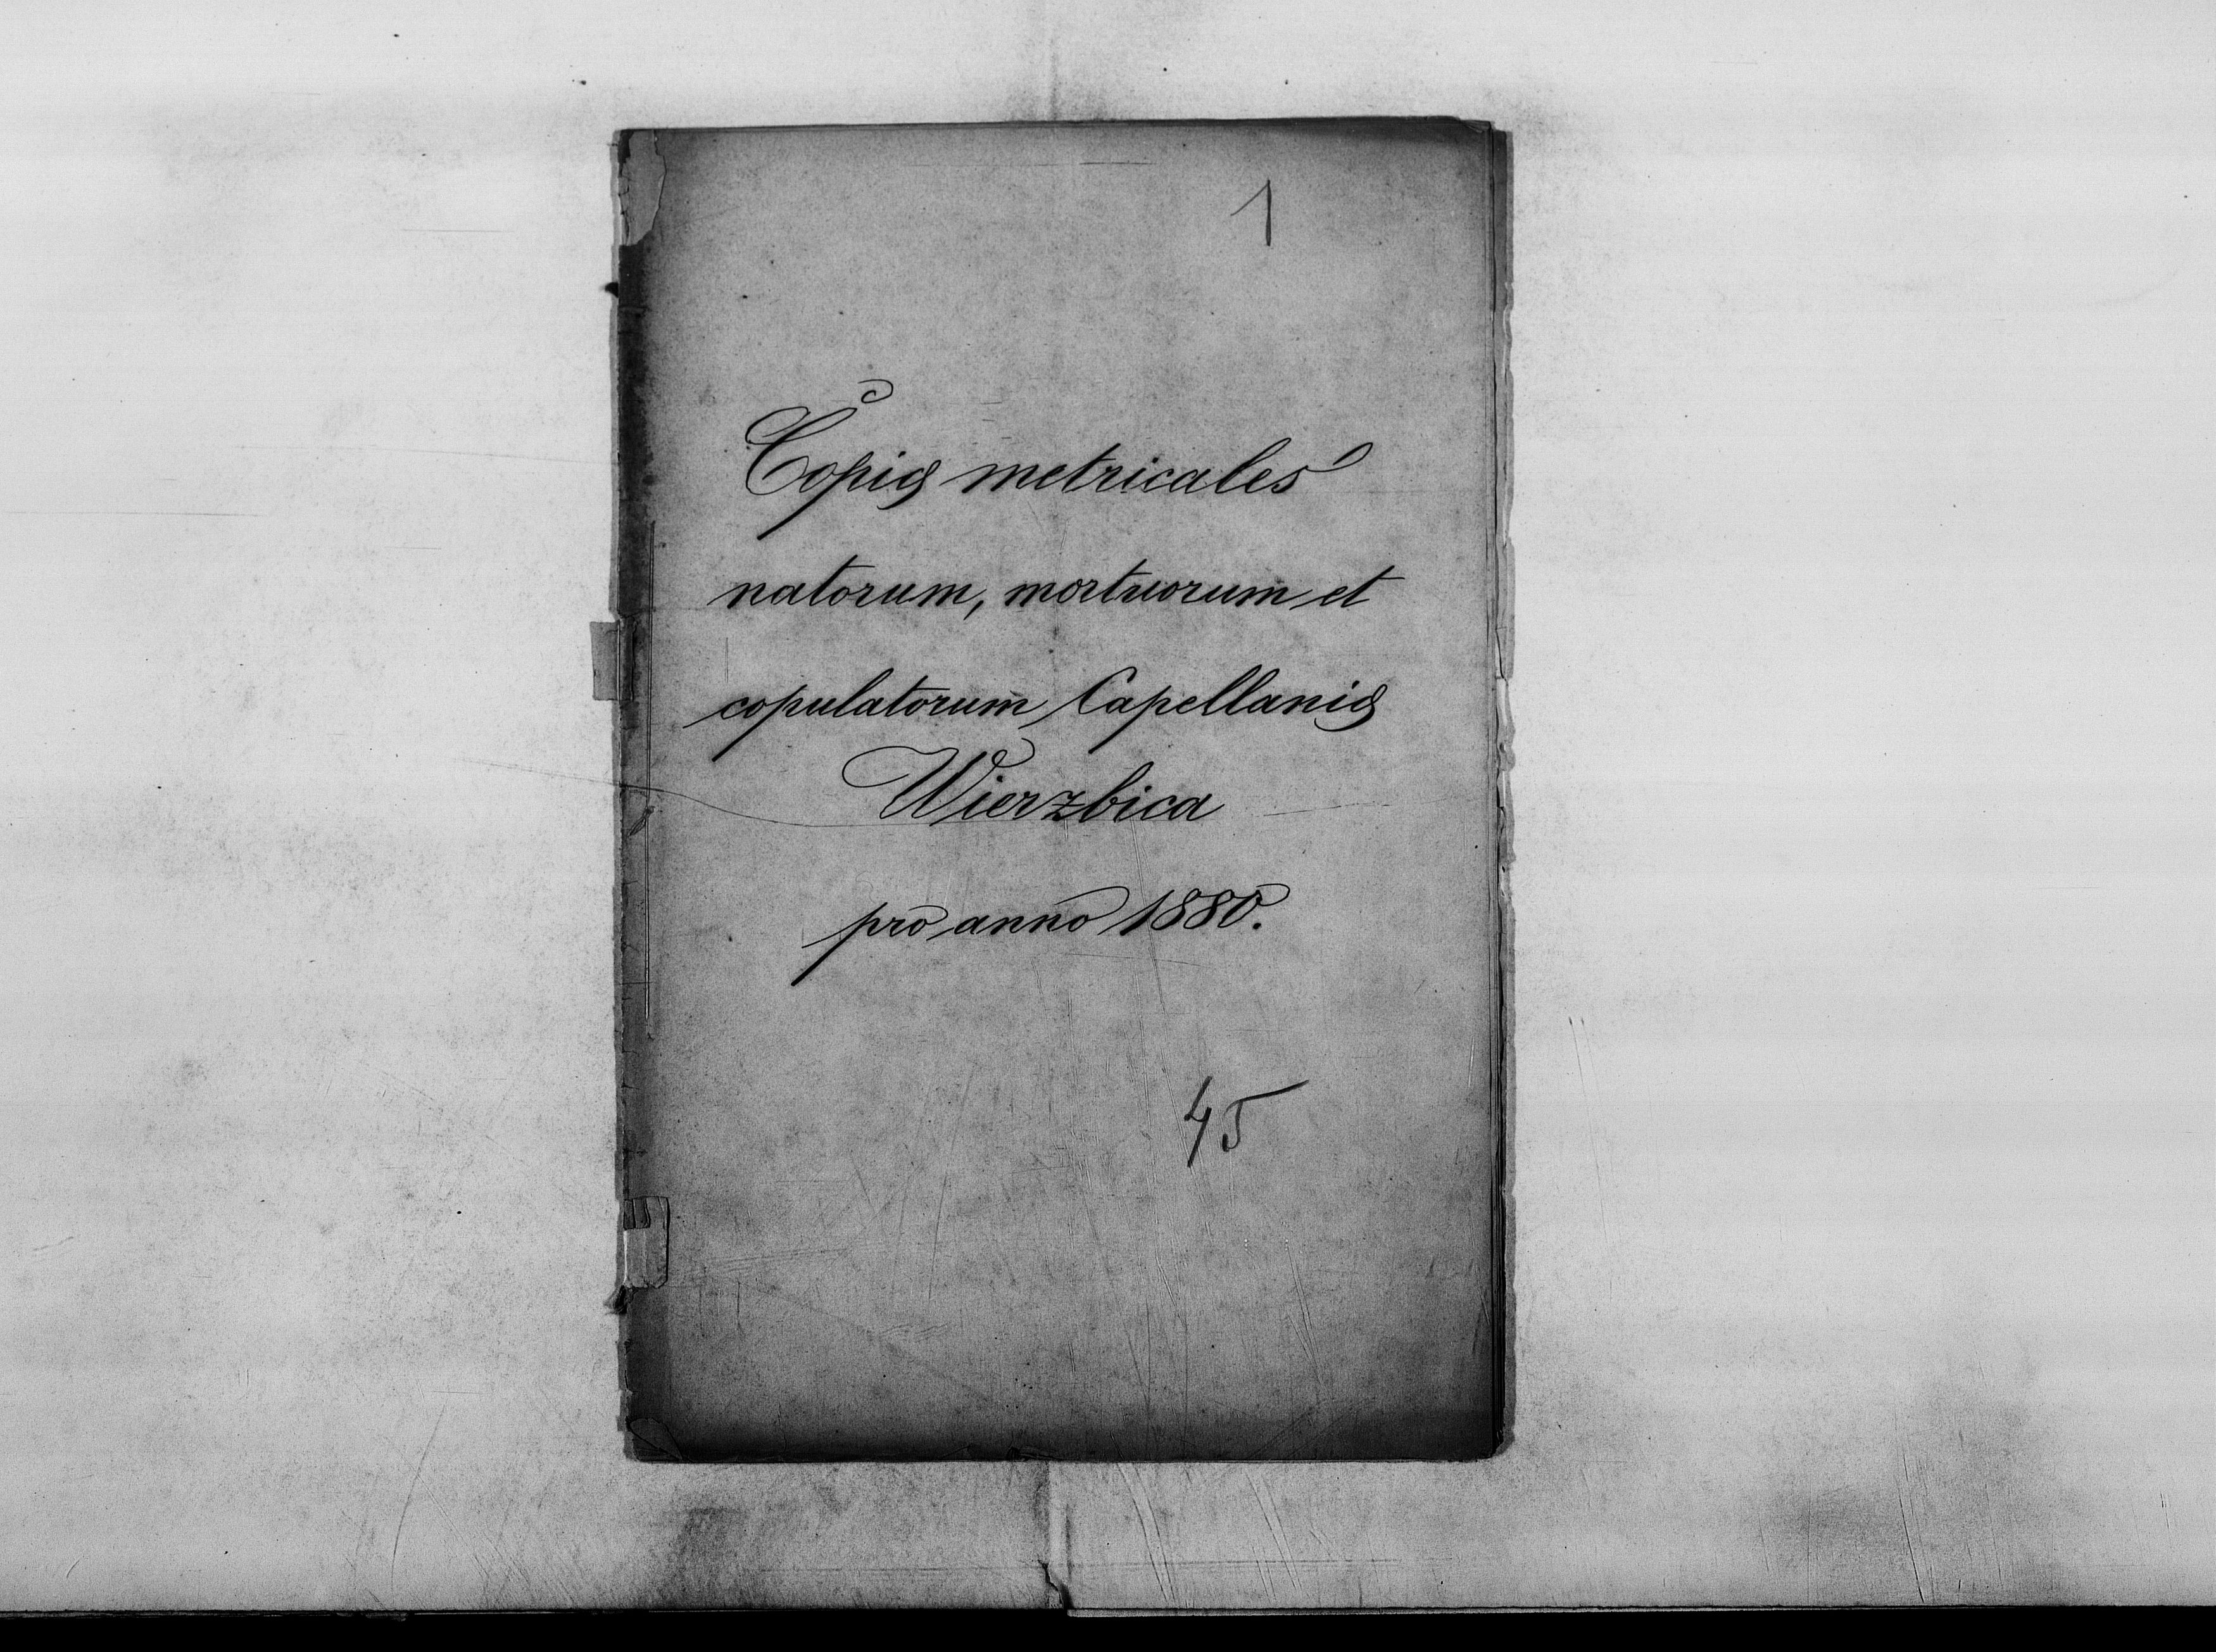 1
Copiæ metricales
natorum, mortuorum et
copulatorum Capellaniæ
Wierzbica
pro anno 1880.
45